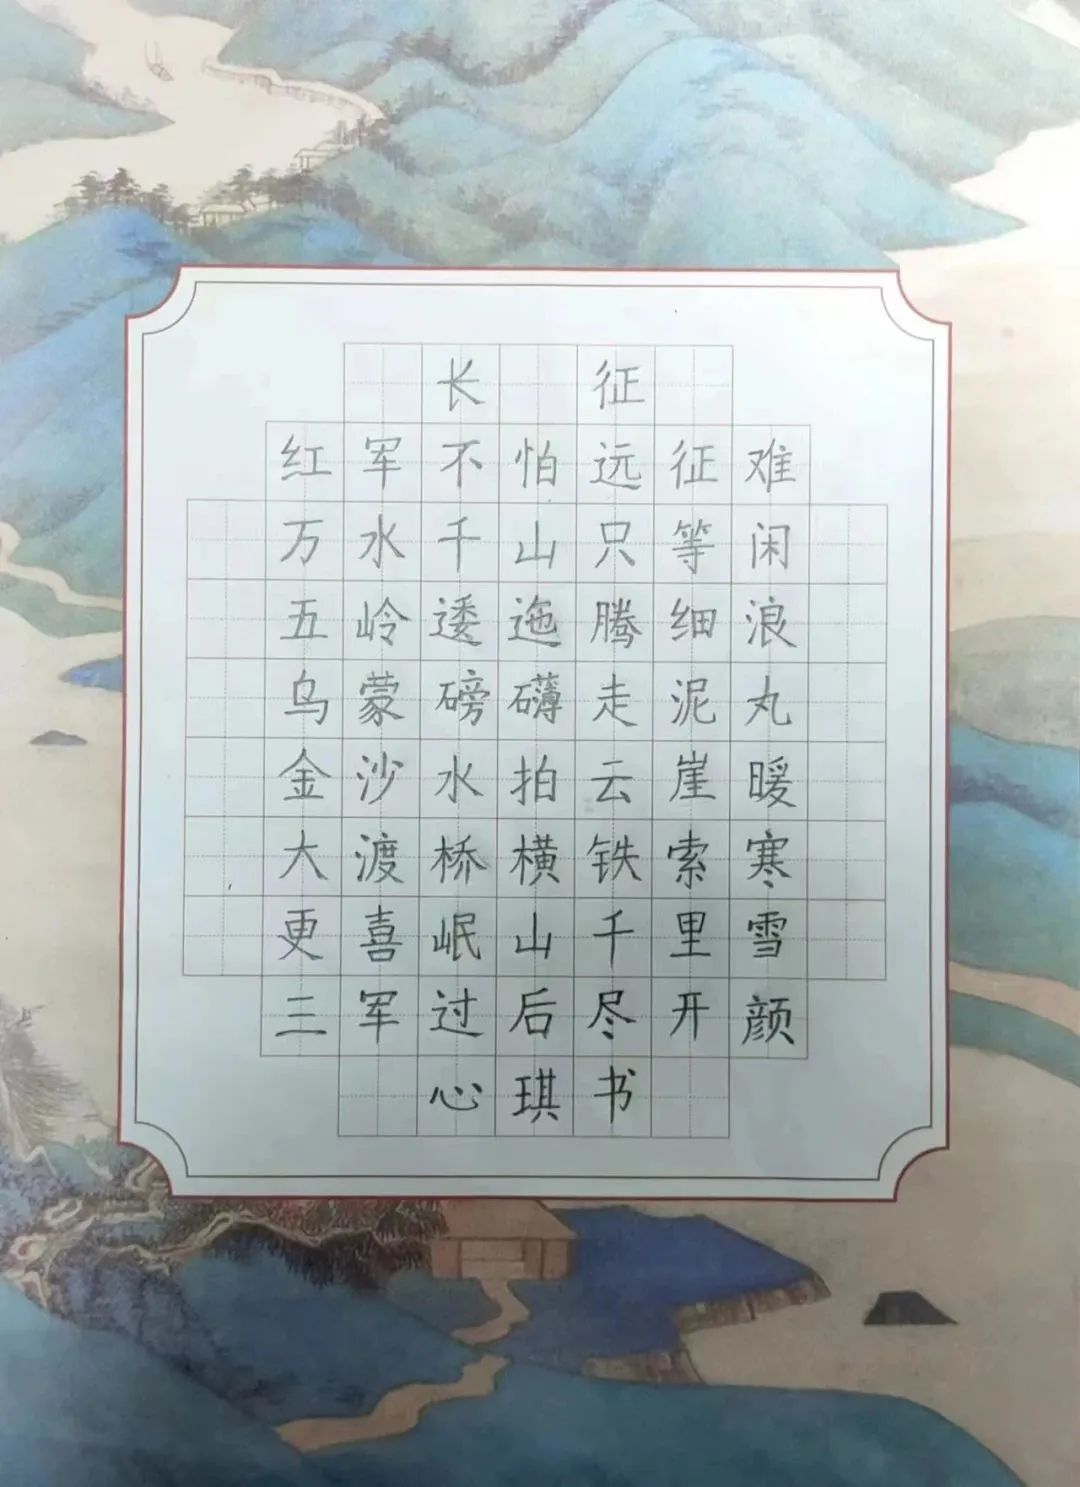 长征
红军不怕远征难
万水千山只等闲
五岭逶迤腾细浪
乌蒙磅礴走泥丸
金沙水拍云崖暖
大渡桥横铁索寒
更喜岷山千里雪
三军过后尽开颜
心琪书